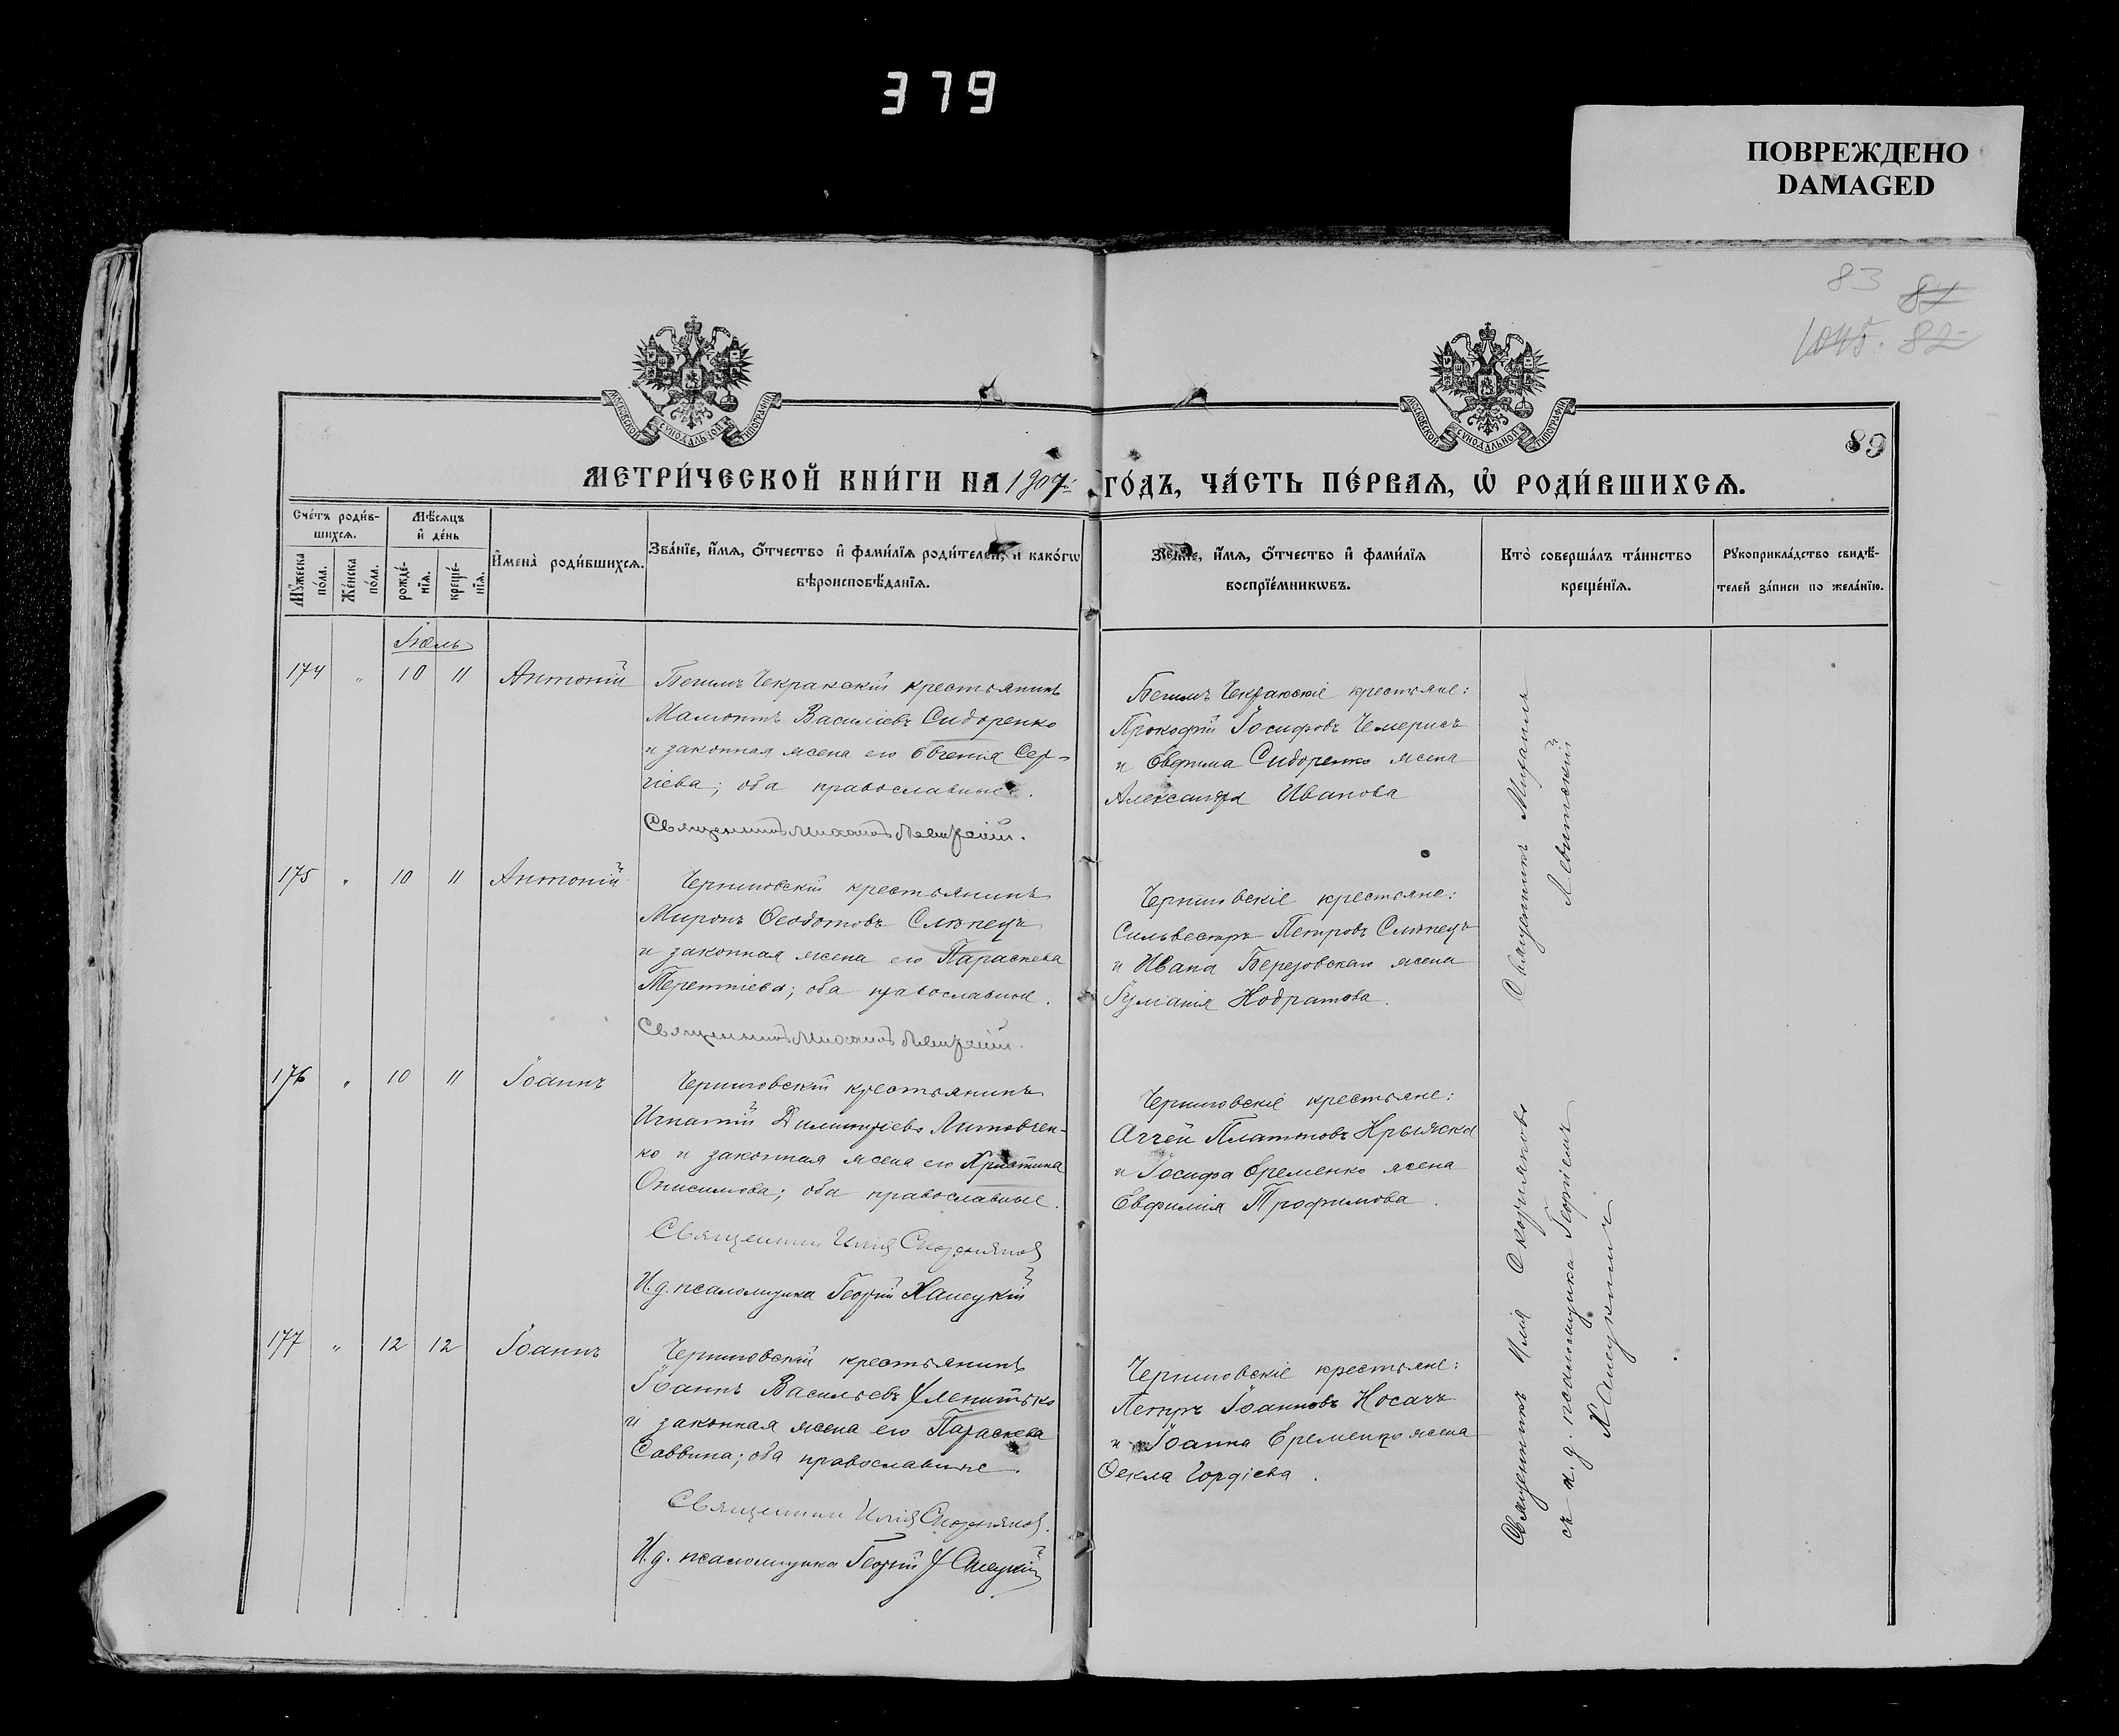 379
ПОВРЕЖДЕНО
DAMAGED
83 87
1045. 82
89
МОСКОВСКОЙ СѴНОДАЛЬНОЙ ТИПОГРАФІИ
МОСКОВСКОЙ СѴНОДАЛЬНОЙ ТИПОГРАФІИ
МЕТРИ́ЧЕСКОЙ КНИ́ГИ НА 1907й ГО́ДЪ, ЧА́СТЬ ПЕ́РВАЯ, Ѡ҆ РОДИ́ВШИХСѦ.
Сче́тъ роди́в-
шихсѧ.
Мꙋ́жеска по́ла.
Же́нска по́ла.
Мѣ́сѧцъ
и҆ де́нь
рожде́-нїѧ.
креще́-нїѧ.
И҆мена̀ роди́вшихсѧ.
Зва́нїе, и҆́мѧ, ѻ҆́тчество и҆ фами́лїѧ роди́телей, и҆ како́гѡ
вѣроисповѣ́данїѧ.
Зва́нїе, и҆́мѧ, ѻ҆́тчество и҆ фами́лїѧ
воспрїе́мникѡвъ.
Кто̀ соверша́лъ та́инство
креще́нїѧ.
Рꙋкоприкла́дство свидѣ́-
телей за́писи по жела́нїю.
Іюль
174 " 10 11 Антоній
Бегимъ Чекракскій крестьянинъ
Мамонтъ Василіевъ Сидоренко
и законная жена его Евгенія Сер-
гіева; оба православные.
Священникъ Михаилъ Левитскій.
Бегимъ Чекракскіе крестьяне:
Прокофій Іосифовъ Чемерисъ
и Евфима Сидоренко жена
Александра Иванова
Священникъ Михаилъ
Левитскій
175 " 10 11 Антоній
Черниговскій крестьянинъ
Миронъ Ѳеодотовъ Слѣпецъ
и законная жена его Параскева
Терентіева; оба православные.
Священникъ Михаилъ Левитскій.
Черниговскіе крестьяне:
Сильвестръ Петровъ Слѣпецъ
и Ивана Березовскаго жена
Іуліанія Кодратова.
176 " 10 11 Іоаннъ
Черниговскій крестьянинъ
Игнатій Димитріевъ Литовчен-
ко и законная жена его Христина
Онисимова; оба православные.
Священникъ Илія Скорняковъ
И.д. псаломщика Георгій Ханецкій
Черниговскіе крестьяне:
Аггей Платоновъ Крыжска
и Іосифа Еременко жена
Евфимія Трофимова.
Священникъ Илія Скорняковъ
съ и.д. псаломщика Георгіемъ
Ханецкимъ
177 " 12 12 Іоаннъ
Черниговскій крестьянинъ
Іоаннъ Васильевъ
и законная жена его Параскева
Саввина; оба православные.
Священникъ Илія Скорняковъ.
И.д. псаломщика Георгій Ханецкій
Черниговскіе крестьяне:
Петръ Іоанновъ Носачъ
и Іоанна Еременко жена
Ѳекла Гордіева.